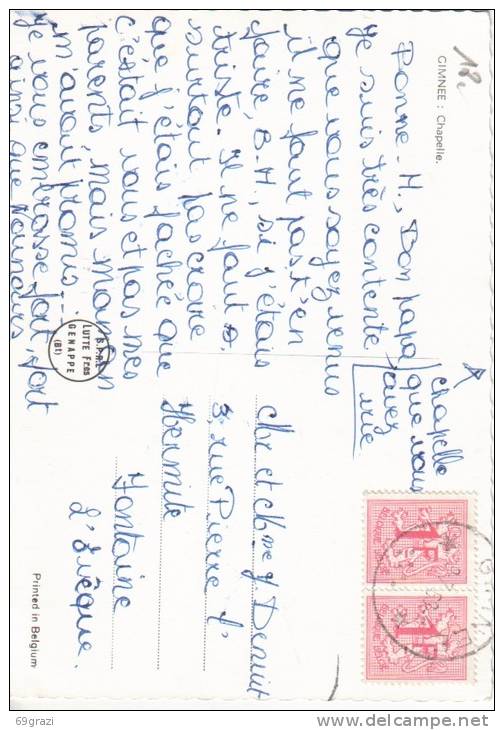 18c
GIMNEE : Chapelle.
Bonne - M., Bon papa
Je suis très contente
que vous soyez venus
il ne faut pas t'en
faire, B. M, si j'étais
triste. Il ne faut
surtout pas croire
que j'étais fachée que
c'était vous et pas mes
parents, mais maman
m'avait promis...
Je vous embrasse fort, fort
ainsi que Nounours
chapelle
que vous
avez
vue
Mr et Mme J. Denuit
3, rue Pierre l'
Hermite
Fontaine
L'Evêque.
S.P.R.L.
LUTTE Fres
GENAPPE
(Bt)
1F
BELGIQUE BELGIE
1F
BELGIQUE BELGIE
Printed in Belgium
69grazi
www.delcampe.net